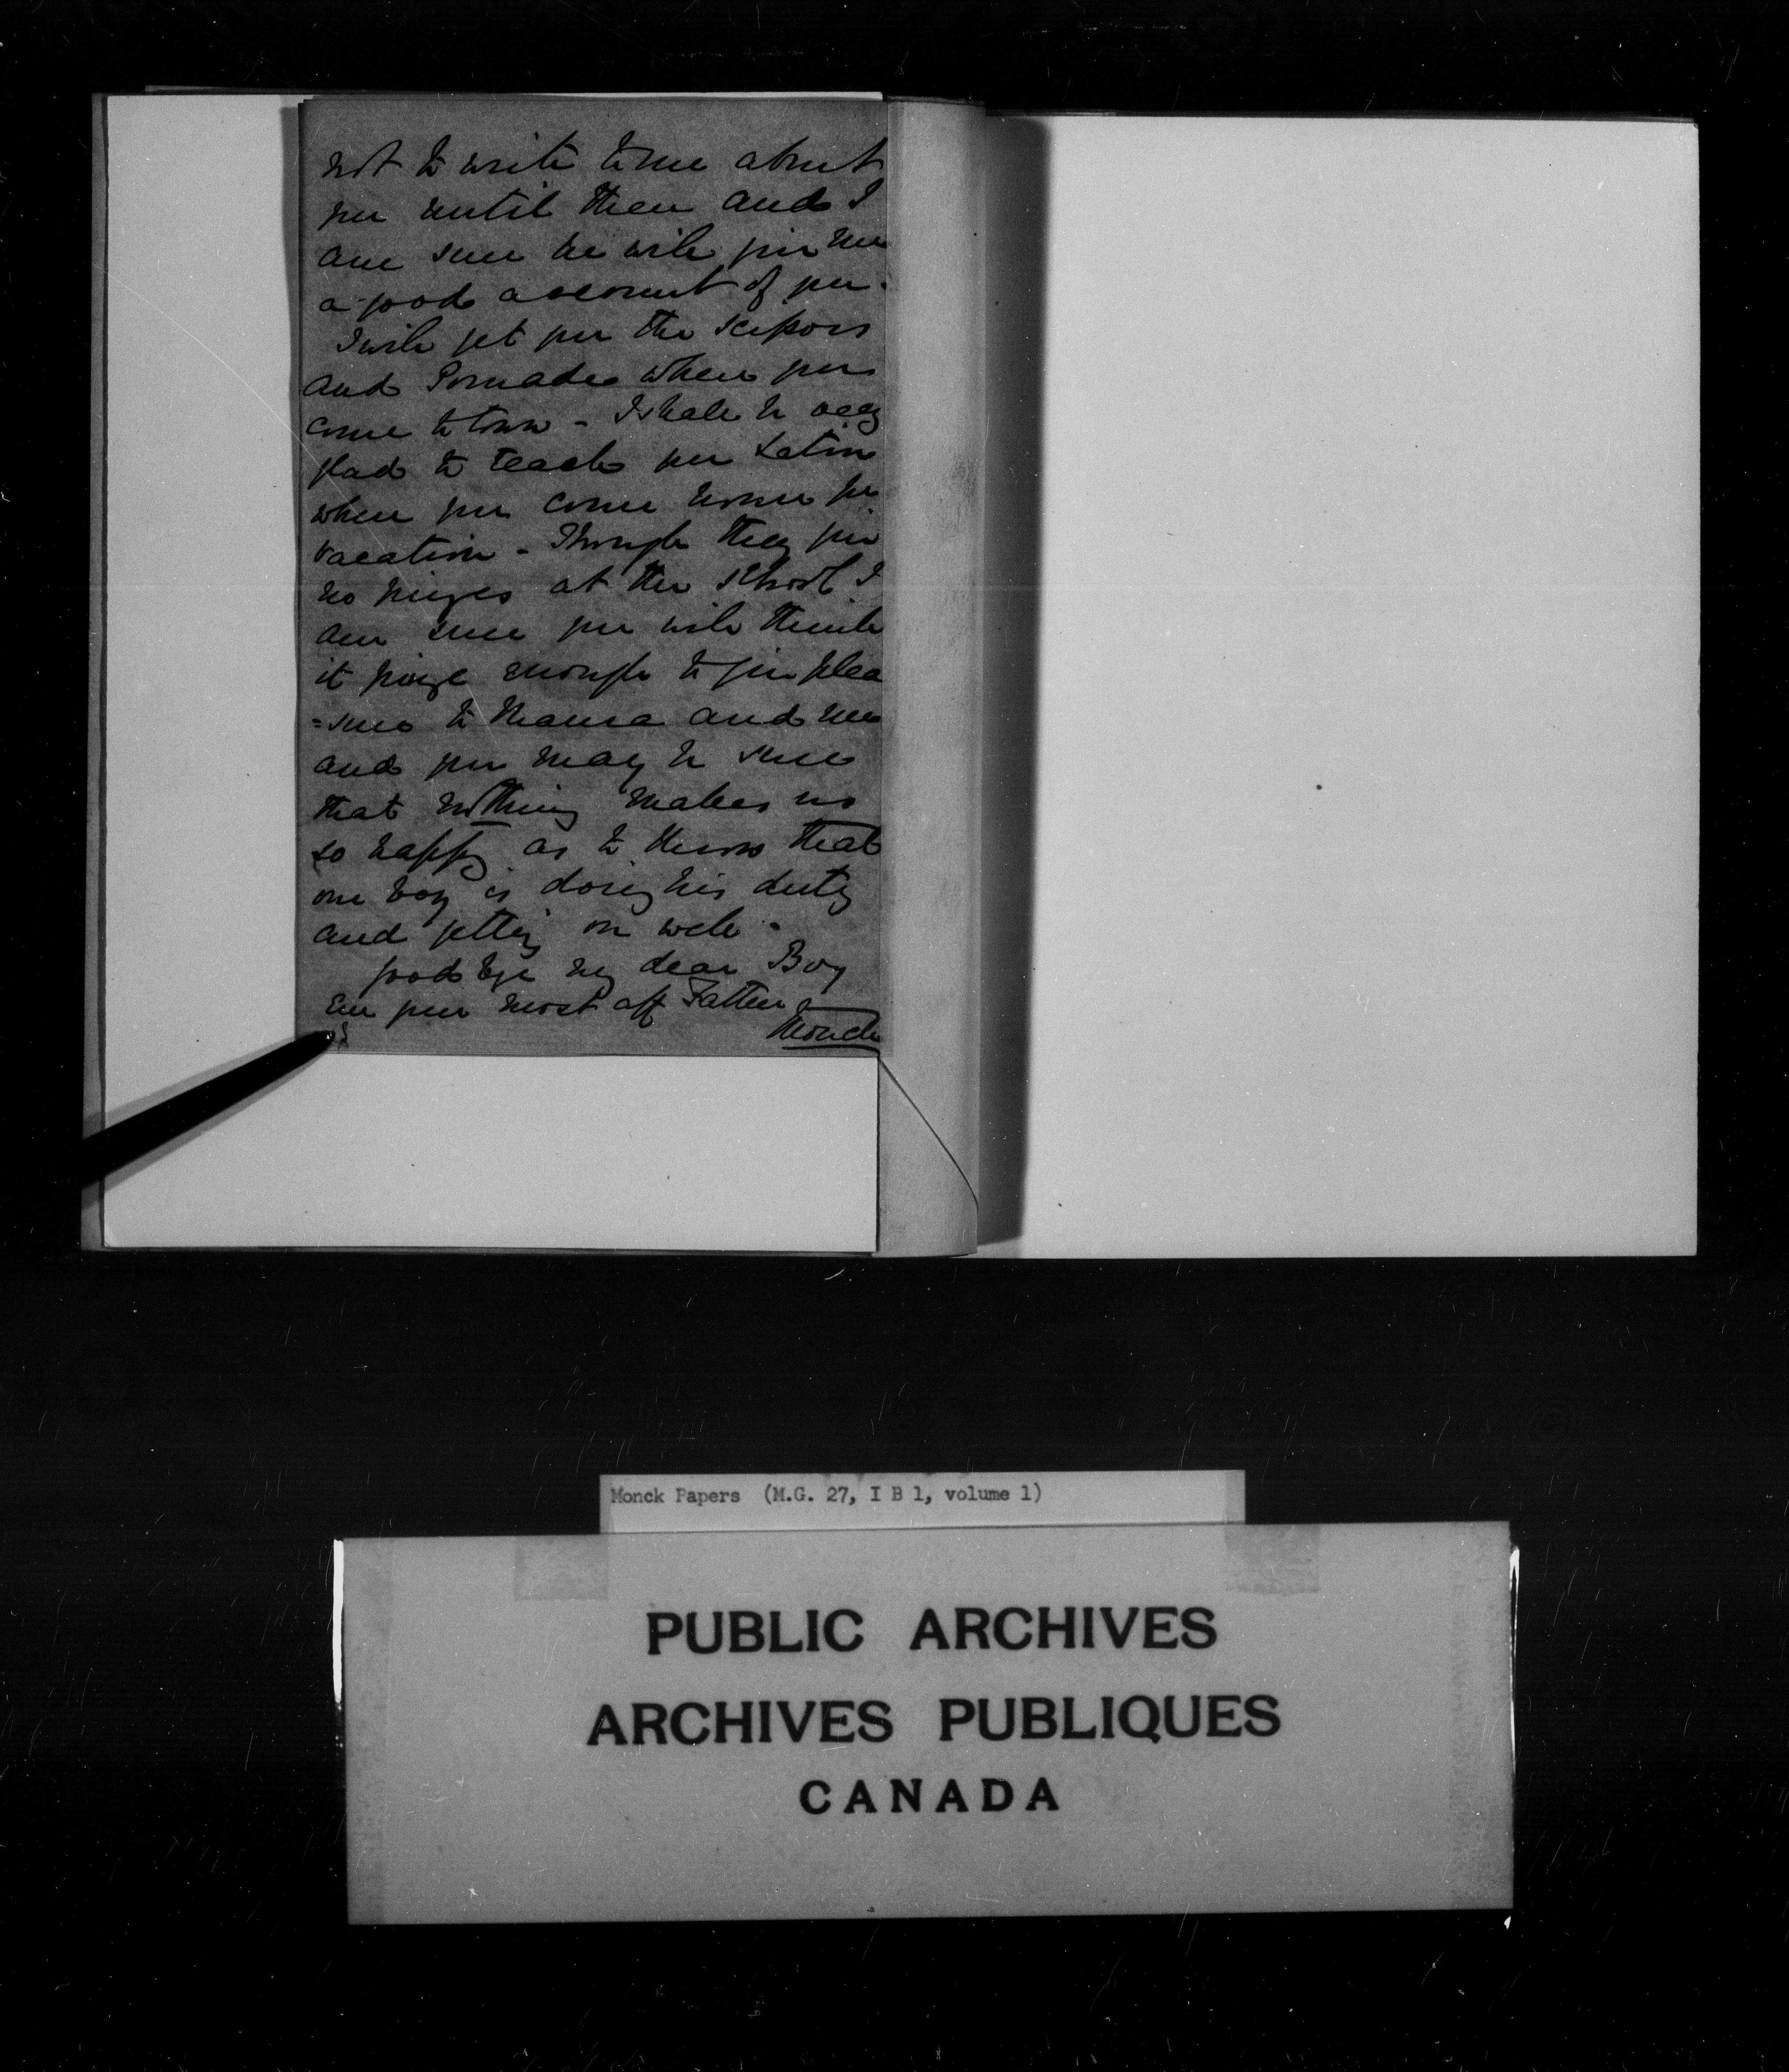 not to write to me about
you until then and I
am sure he will give me
a good account of you.
I will get you the scissors
and Pomade when you
come to town - I shall be very
glad to teach you Latin
when you come home for
vacation - Though they give
no prizes at the school I
am sure you will think
it prize enough to give plea
=sure to Mama and me
and you may be sure
that nothing makes us
so happy as to know that
our boy is doing his duty
and getting on well.
good bye my dear Boy
Ever your most aff Father
Monck
Monck Papers (M.G. 27, I B 1, volume 1)
PUBLIC ARCHIVES
ARCHIVES PUBLIQUES
CANADA